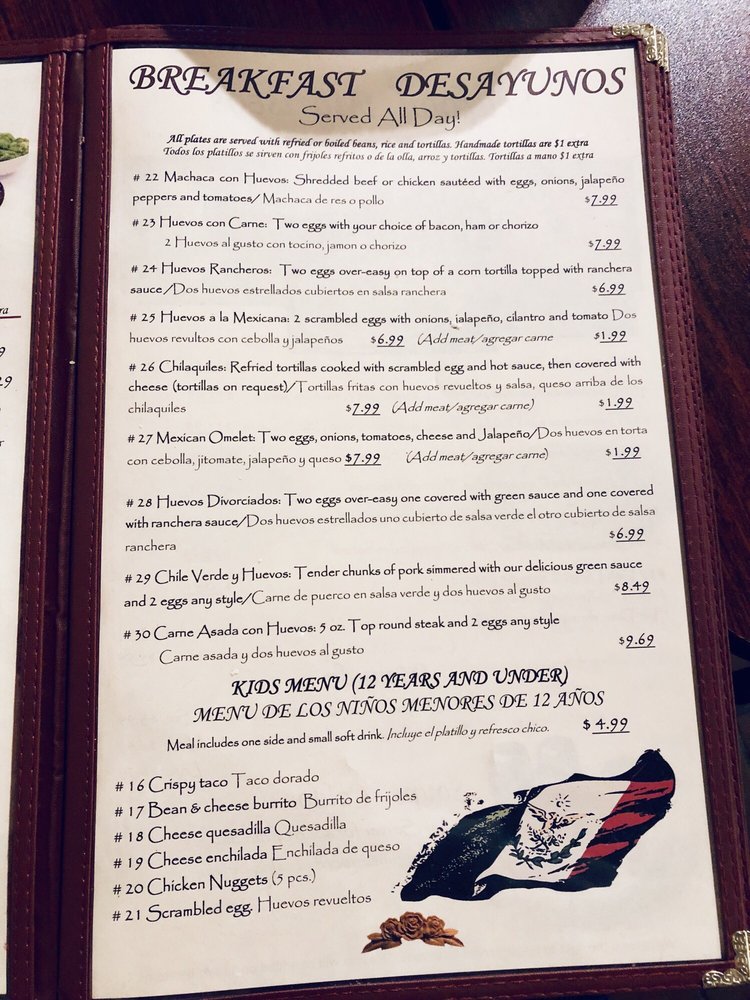 BREAKFAST DESAYUNOS
Served All Day!
All plates are served with refried or boiled beans, rice and tortillas. Handmade tortillas are $1 extra
Todos los platillos se sirven con frijoles refritos o de la olla, arroz y tortillas. Tortillas a mano $1 extra
# 22 Machaca con Huevos: Shredded beef or chicken sautéed with eggs, onions, jalapeño
peppers and tomatoes/ Machaca de res o pollo $7.99
# 23 Huevos con Carne: Two eggs with your choice of bacon, ham or chorizo
2 Huevos al gusto con tocino, jamon o chorizo $7.99
# 24 Huevos Rancheros: Two eggs over-easy on top of a corn tortilla topped with ranchera
sauce/Dos huevos estrellados cubiertos en salsa ranchera $6.99
# 25 Huevos a la Mexicana: 2 scrambled eggs with onions, jalapeño, cilantro and tomato Dos
huevos revultos con cebolla y jalapeños $6.99 (Add meat/agregar carne $1.99
# 26 Chilaquiles: Refried tortillas cooked with scrambled egg and hot sauce, then covered with
cheese (tortillas on request)/Tortillas fritas con huevos revueltos y salsa, queso arriba de los
chilaquiles $7.99 (Add meat/agregar carne) $1.99
# 27 Mexican Omelet: Two eggs, onions, tomatoes, cheese and Jalapeño/Dos huevos en torta
con cebolla, jitomate, jalapeño y queso $7.99 (Add meat/agregar carne) $1.99
# 28 Huevos Divorciados: Two eggs over-easy one covered with green sauce and one covered
with ranchera sauce/Dos huevos estrellados uno cubierto de salsa verde el otro cubierto de salsa
ranchera $6.99
# 29 Chile Verde y Huevos: Tender chunks of pork simmered with our delicious green sauce
and 2 eggs any style/Carne de puerco en salsa verde y dos huevos al gusto $8.49
# 30 Carne Asada con Huevos: 5 oz. Top round steak and 2 eggs any style
Carne asada y dos huevos al gusto $9.69
KIDS MENU (12 YEARS AND UNDER)
MENU DE LOS NIÑOS MENORES DE 12 AÑOS
Meal includes one side and small soft drink. Incluye el platillo y refresco chico. $ 4.99
# 16 Crispy taco Taco dorado
# 17 Bean & cheese burrito Burrito de frijoles
# 18 Cheese quesadilla Quesadilla
# 19 Cheese enchilada Enchilada de queso
# 20 Chicken Nuggets (5 pcs.)
# 21 Scrambled egg. Huevos revueltos